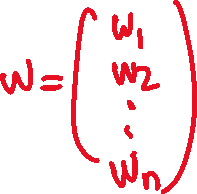 w = ( w₁
w₂
.
.
wₙ )